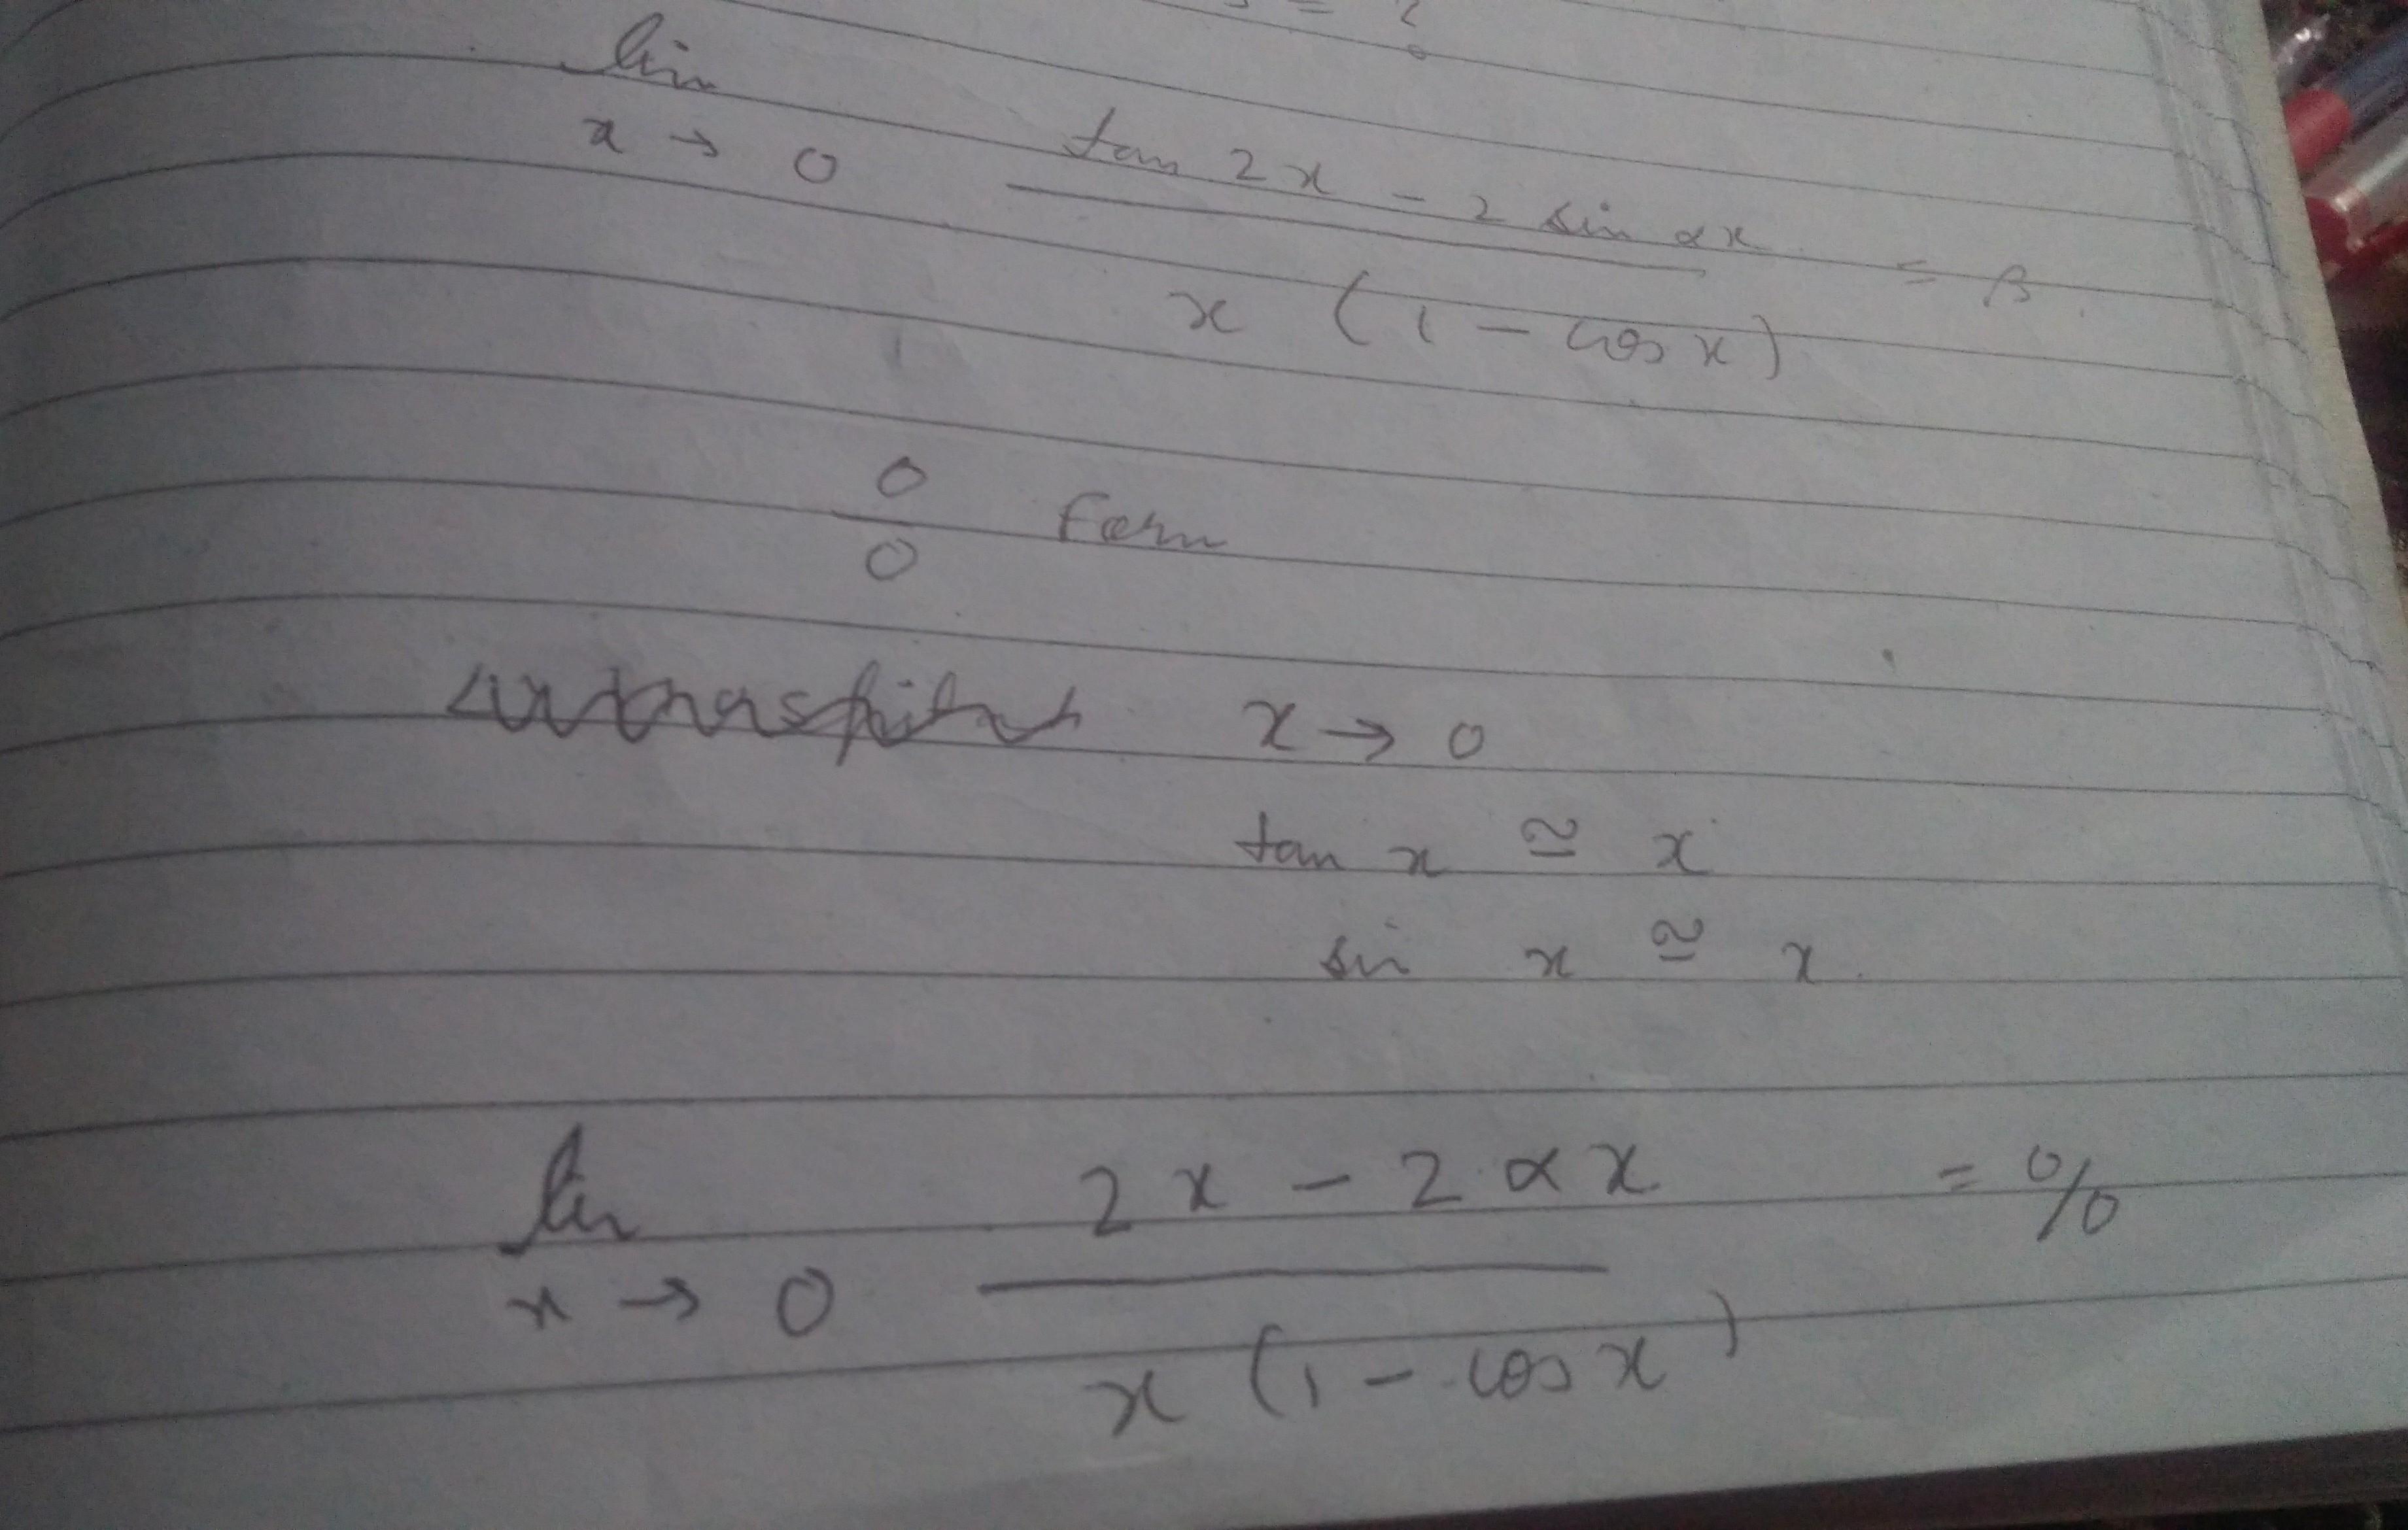 lim
x → 0
tan 2x - 2 sin αx = β.
x (1 - cos x)
0
0 Form
x → 0
tan x ≅ x
sin x ≅ x.
lim
x → 0
2x - 2αx = 0/0
x (1 - cos x)